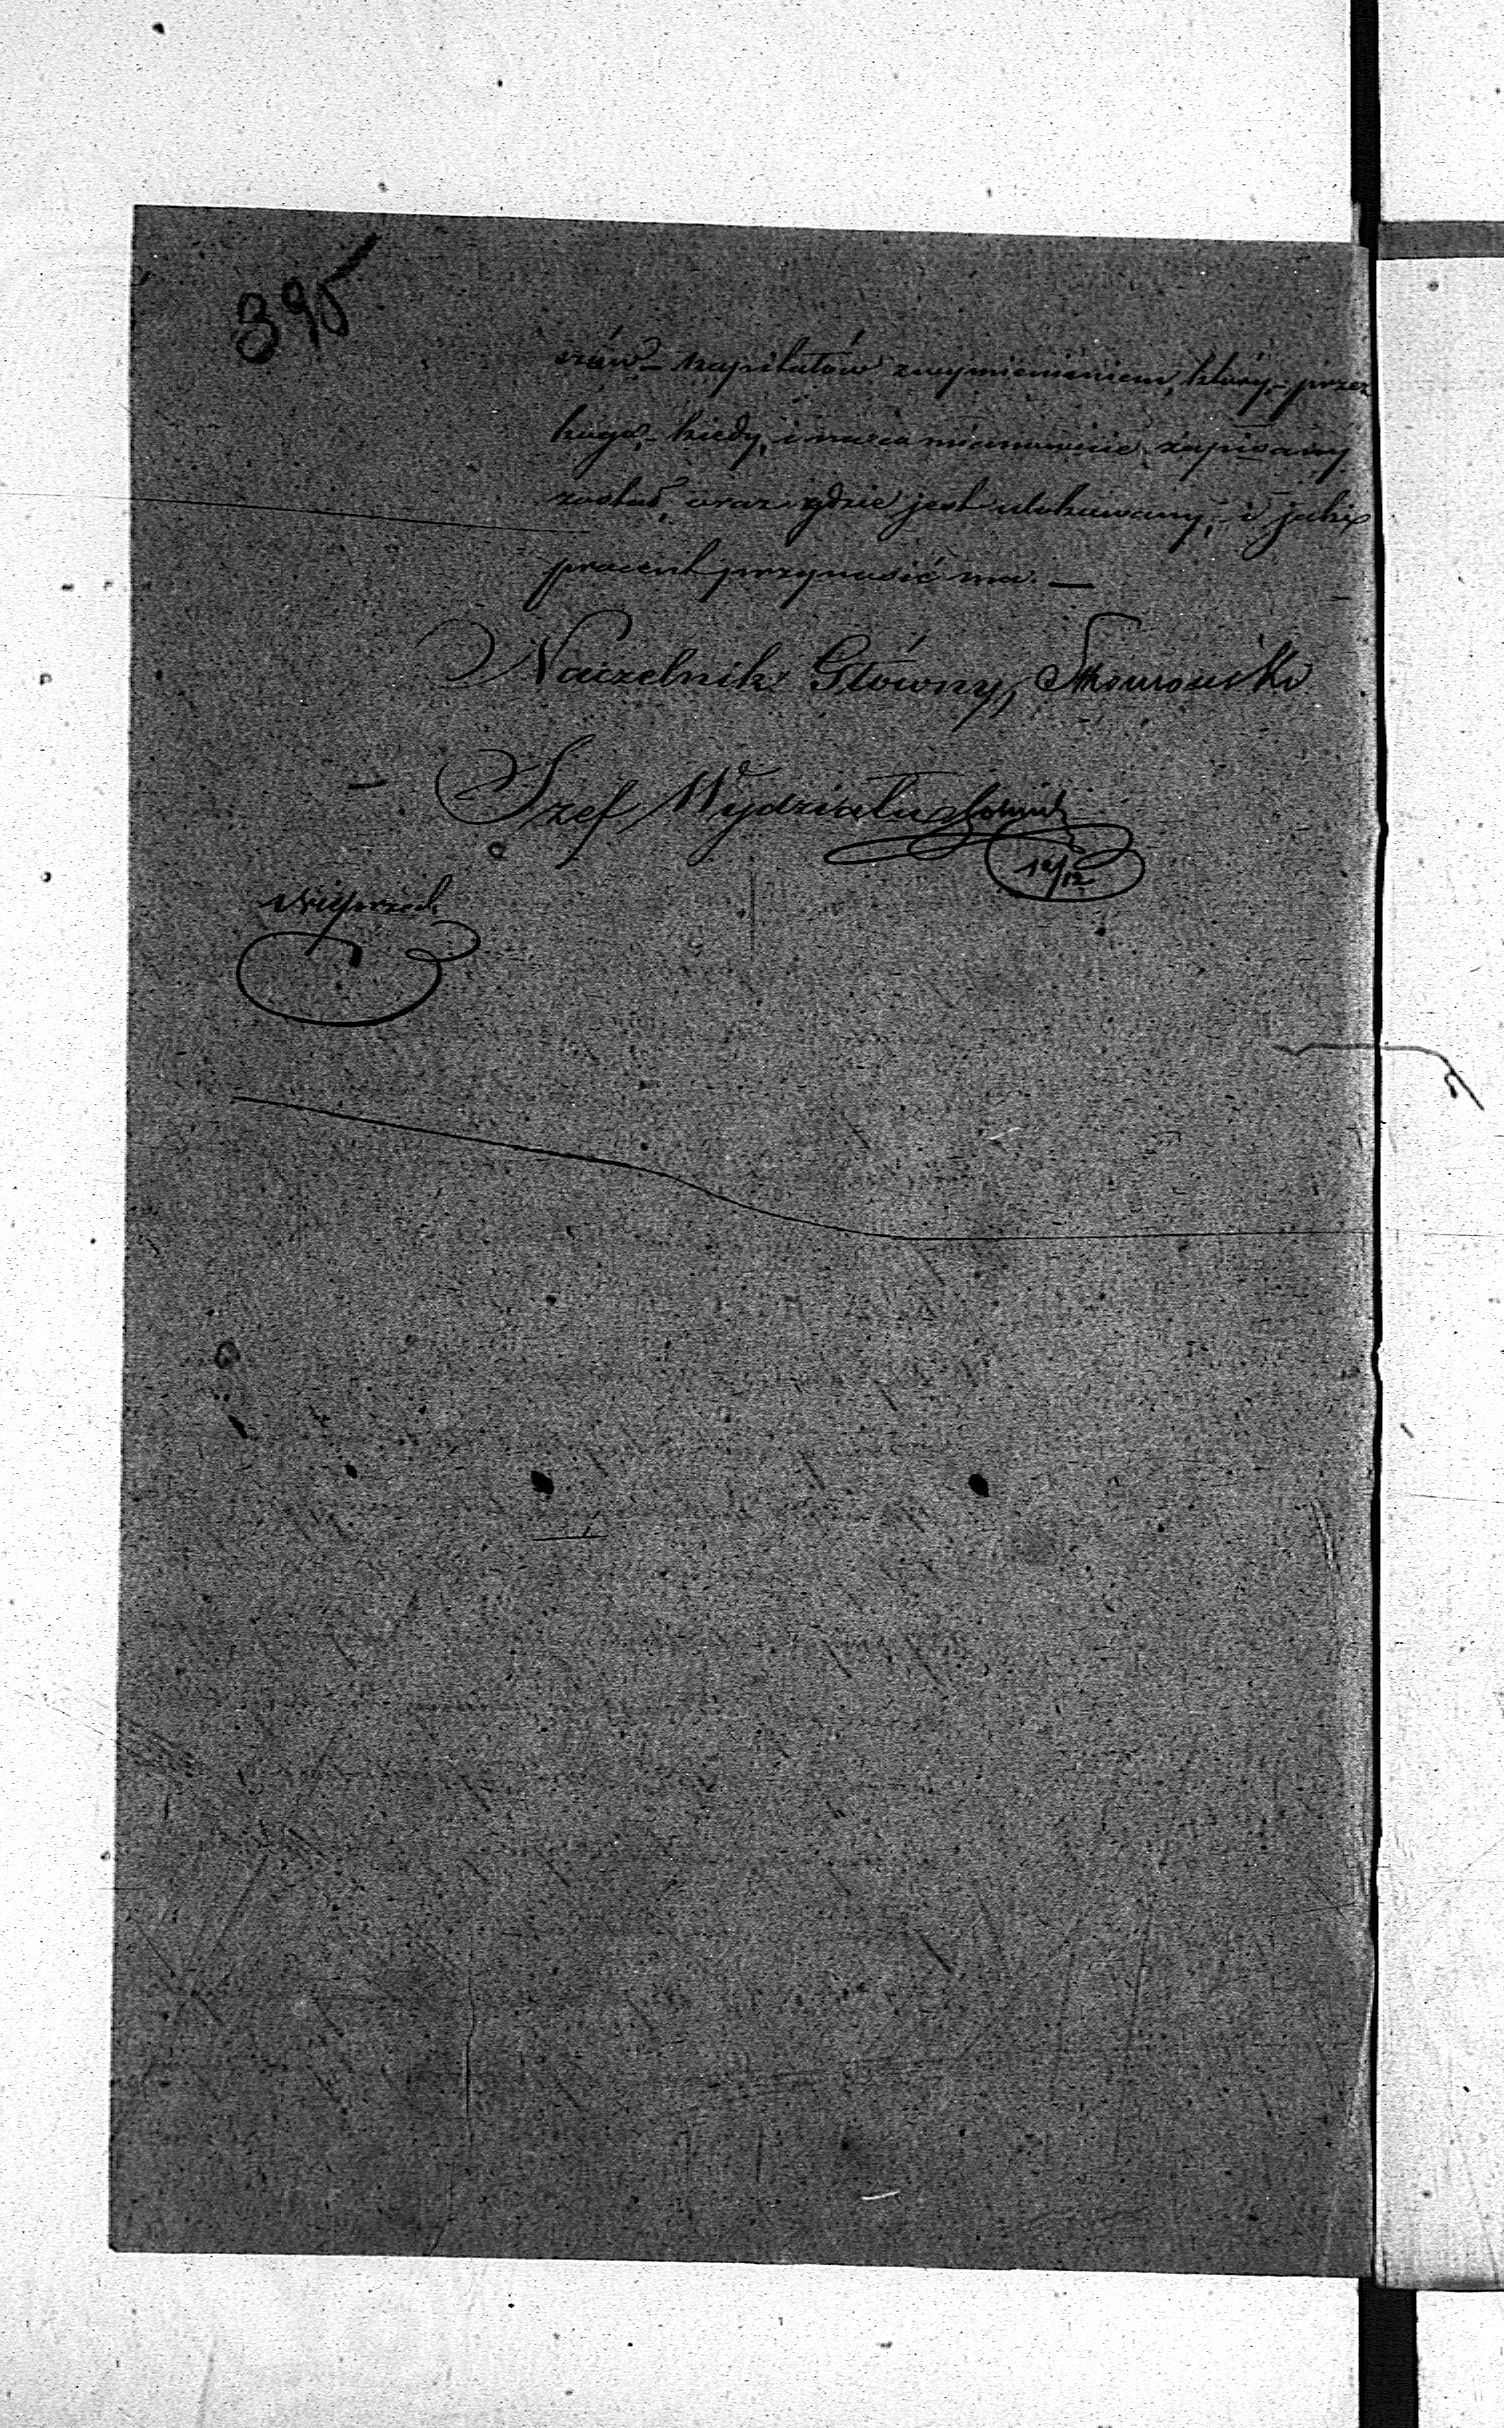 395
szów kapitałów z wymienieniem, który, przez
kogo, kiedy, i na co mianowicie zapisany
został, oraz gdzie jest ulokowany, i jaki
procent przynosić ma. —
Naczelnik Główny,
Szef Wydziału
12/12